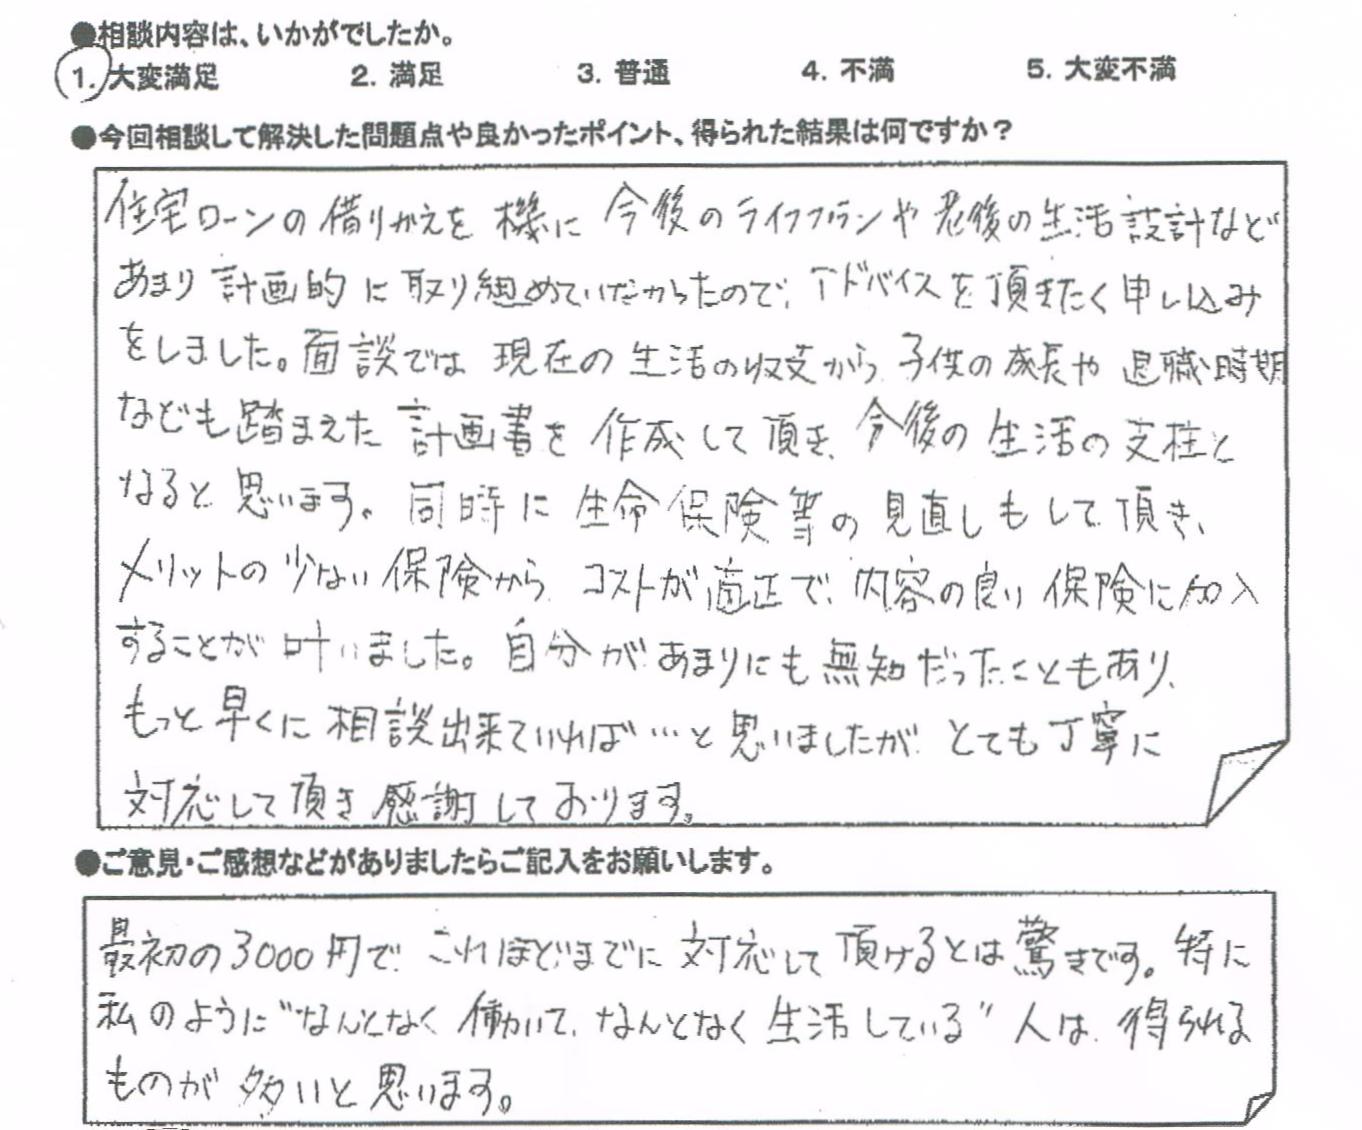 ●相談内容は、いかがでしたか。
1. 大変満足 2. 満足 3. 普通 4. 不満 5. 大変不満
●今回相談して解決した問題点や良かったポイント、得られた結果は何ですか？
住宅ローンの借りかえを機に今後のライフプランや老後の生活設計など
あまり計画的に取り組めていなかったので、アドバイスを頂きたく申し込み
をしました。面談では現在の生活の収支から、子供の成長や退職時期
なども踏まえた計画書を作成して頂き、今後の生活の支柱と
なると思います。同時に生命保険等の見直しもして頂き、
メリットの少ない保険から、コストが適正で、内容の良い保険に加入
することが叶いました。自分があまりにも無知だったこともあり、
もっと早くに相談出来ていれば…と思いましたが、とても丁寧に
対応して頂き感謝しております。
●ご意見・ご感想などがありましたらご記入をお願いします。
最初の3000円で、これほどまでに対応して頂けるとは驚きです。特に
私のように"なんとなく働いて、なんとなく生活している"人は、得られる
ものが多いと思います。